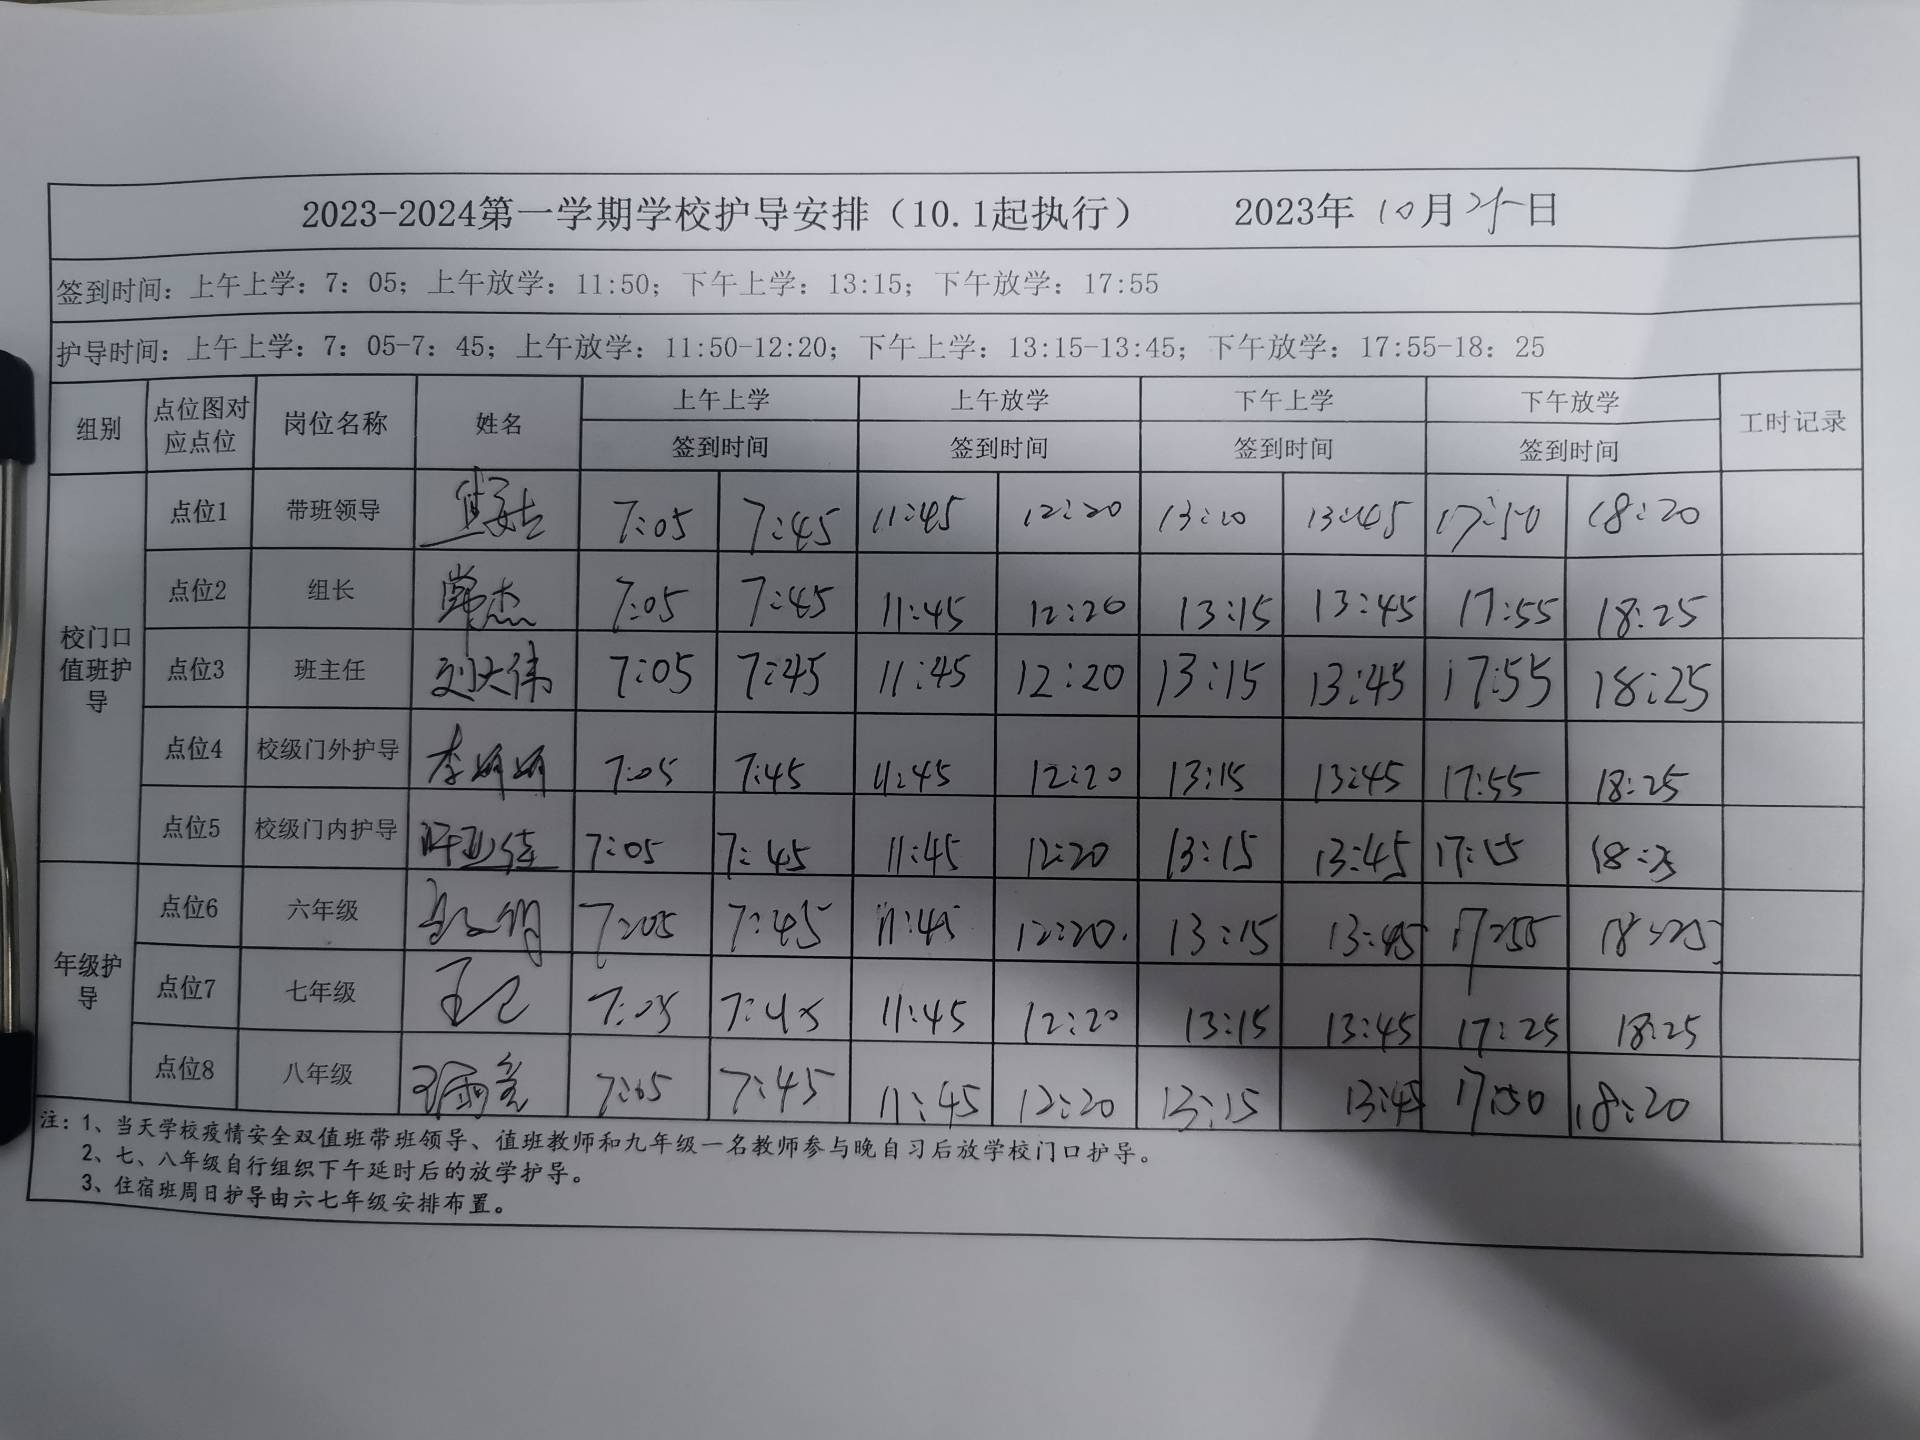 2023-2024第一学期学校护导安排（10.1起执行） 2023年10月25日
签到时间：上午上学：7：05；上午放学：11:50；下午上学：13:15；下午放学：17:55
护导时间：上午上学：7：05-7：45；上午放学：11:50-12:20；下午上学：13:15-13:45；下午放学：17:55-18：25
组别 点位图对应点位 岗位名称 姓名 上午上学 上午放学 下午上学 下午放学 工时记录
签到时间 签到时间 签到时间 签到时间
校门口值班护导
点位1 带班领导 7:05 7:45 11:45 12:20 13:10 13:45 17:50 18:20
点位2 组长 常杰 7:05 7:45 11:45 12:20 13:15 13:45 17:55 18:25
点位3 班主任 刘大伟 7:05 7:45 11:45 12:20 13:15 13:45 17:55 18:25
点位4 校级门外护导 李娟娟 7:05 7:45 11:45 12:20 13:15 13:45 17:55 18:25
点位5 校级门内护导 7:05 7:45 11:45 12:20 13:15 13:45 17:55 18:25
年级护导
点位6 六年级 7:05 7:45 11:45 12:20 13:15 13:45 17:55 18:25
点位7 七年级 7:05 7:45 11:45 12:20 13:15 13:45 17:25 18:25
点位8 八年级 7:05 7:45 11:45 12:20 13:15 13:45 17:50 18:20
注：1、当天学校疫情安全双值班带班领导、值班教师和九年级一名教师参与晚自习后放学校门口护导。
2、七、八年级自行组织下午延时后的放学护导。
3、住宿班周日护导由六七年级安排布置。